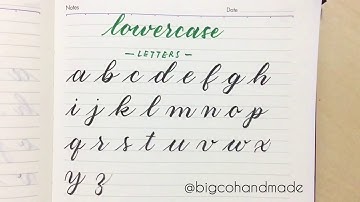 Notes Date
lowercase
- LETTERS -
a b c d e f g h
i j k l m n o p
q r s t u v w x
y z
@bigcohandmade